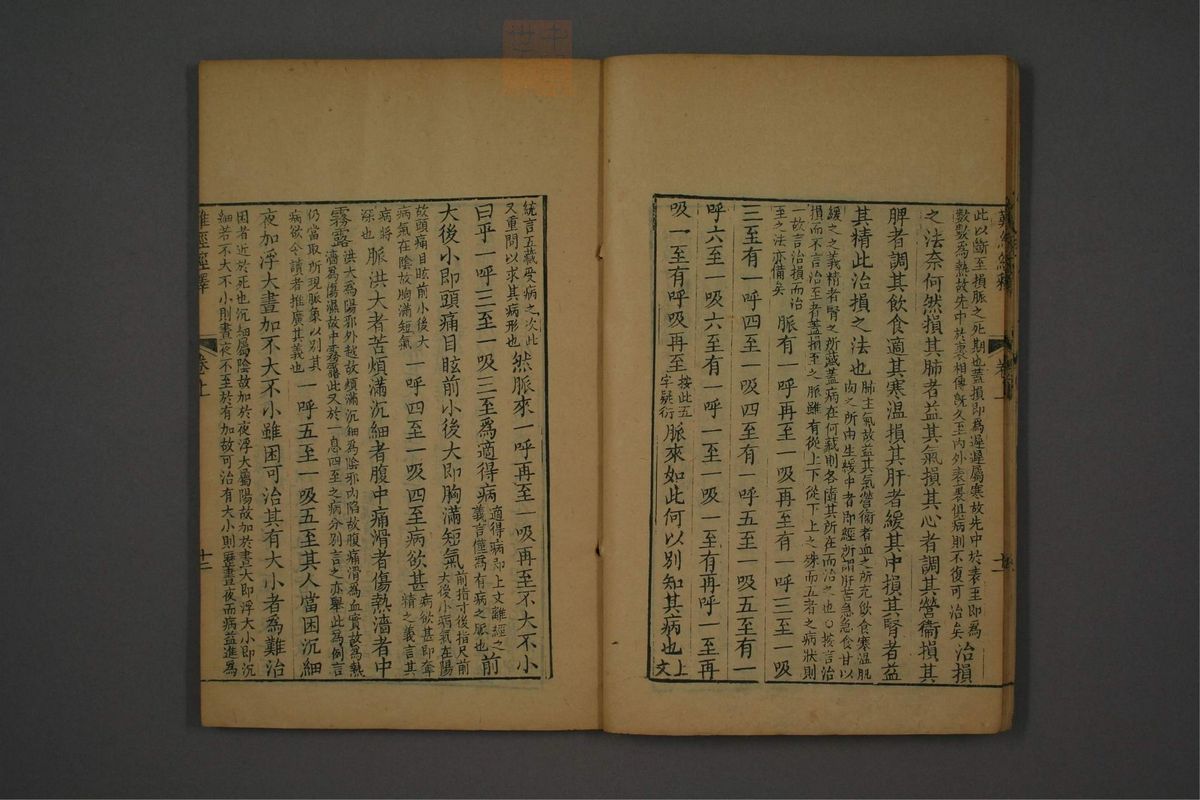 難經經釋 卷上 十一
此以斷至損脈之死期也蓋損即為遲遲屬寒故先中於表至即為
數數為熱故先中於裏相傳既久至內外表裏俱病則不復可治矣
治損
之法奈何然損其肺者益其氣損其心者調其營衞損其
脾者調其飲食適其寒溫損其肝者緩其中損其腎者益
其精此治損之法也
肺主氣故益其氣營衞者血之所充飲食寒溫肌
肉之所由生緩中者即經所謂肝苦急急食甘以
緩之之義精者腎之所藏蓋病在何藏則各啇其所在而治之也○按言治
損而不言治至者蓋損至之脈雖有從上下從下上之殊而五者之病狀則
一故言治損而治
至之法亦備矣
脈有一呼再至一吸再至有一呼三至一吸
三至有一呼四至一吸四至有一呼五至一吸五至有一
呼六至一吸六至有一呼一至一吸一至有再呼一至再
吸一至有呼吸再至
按此五
字疑衍
脈來如此何以別知其病也
上
文
統言五藏受病之次此
又重問以求其病形也
然脈來一呼再至一吸再至不大不小
曰平一呼三至一吸三至爲適得病
適得病即上文離經之
義言僅為有病之脈也
前
大後小即頭痛目眩前小後大即胸滿短氣
前指寸後指尺前
大後小病氣在陽
故頭痛目眩前小後大
病氣在陰故胸滿短氣
一呼四至一吸四至病欲甚
病欲甚即奪
精之義言其
病將
深也
脈洪大者苦煩滿沉細者腹中痛滑者傷熱濇者中
霧露
洪大為陽邪外越故煩滿沉細為陰邪內陷故腹痛滑為血實故為熱
濇為傷濕故中霧露此又於一息四至之病分別言之亦舉此為例言
仍當取所現脈象以別其
病欲令讀者推廣其義也
一呼五至一吸五至其人當困沉細
夜加浮大晝加不大不小雖困可治其有大小者爲難治
困者近於死也沉細屬陰故加於夜浮大屬陽故加於晝大即浮大小即沉
細若不大不小則晝夜不至於有加故可治有大小則歷晝夜而病益進為
難經經釋 卷上 十二